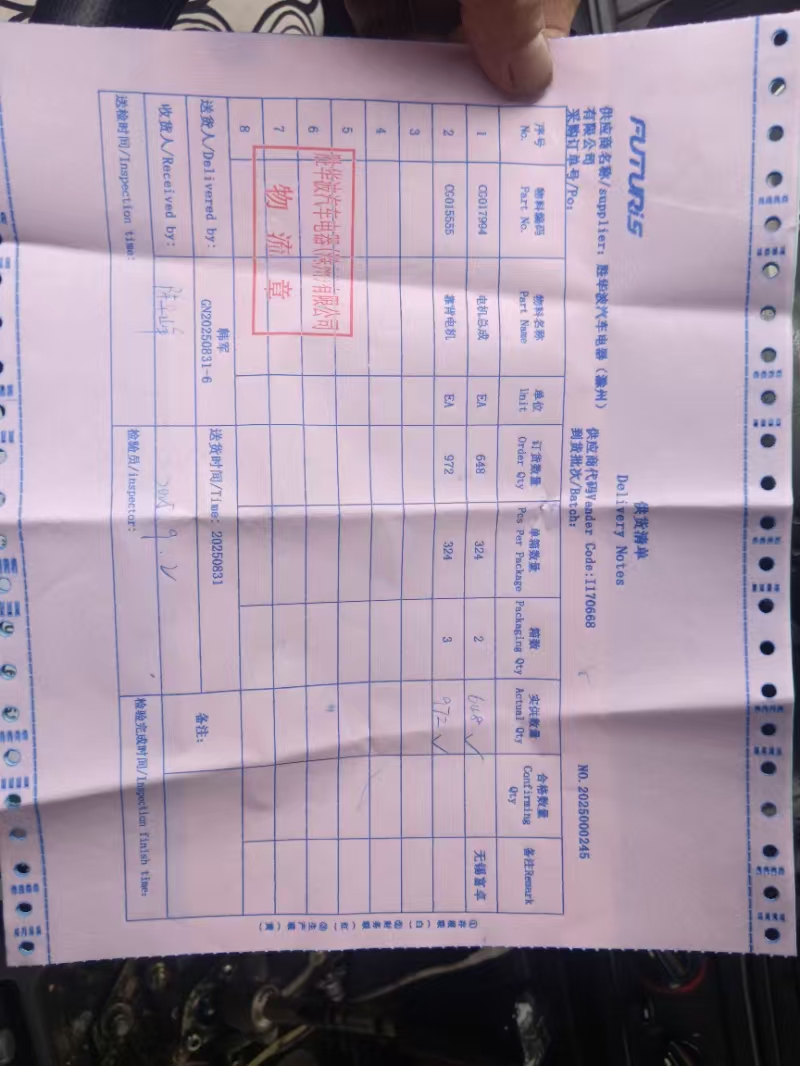 FUTURIS
供货清单
Delivery Notes
NO. 2025000245
供应商名称/supplier: 胜华波汽车电器（滁州）有限公司
供应商代码Vander Code:I170668
采购订单号/Po:
到货批次/Batch:
序号 No. 物料编码 Part No. 物料名称 Part Name 单位 Unit 订货数量 Order Qty 单箱数量 Pcs Per Package 箱数 Packaging Qty 实供数量 Actual Qty 合格数量 Confirming Qty 备注Remark
1 CG017994 电机总成 EA 648 324 2 648 ✓ 无锡富卓
2 CG015555 靠背电机 EA 972 324 3 972 ✓
3
4
5
6
7
8
胜华波汽车电器(滁州)有限公司
物流章
送货人/Delivered by: 韩军 GN20250831-6
送货时间/Time: 20250831
备注:
收货人/Received by:
2025.9.2
送检时间/Inspection time:
检验员/inspector:
检验完成时间/Inspection finish time: